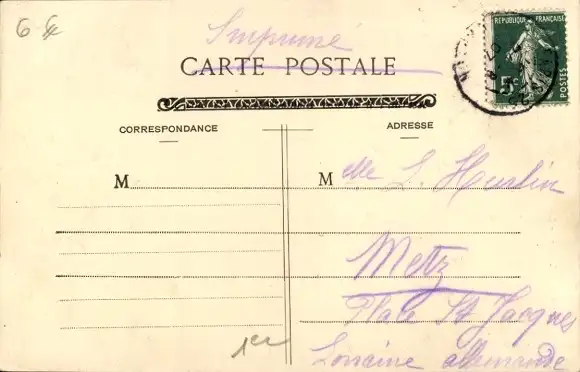 6 €
Imprimé
CARTE POSTALE
REPUBLIQUE FRANÇAISE
5c
POSTES
CORRESPONDANCE
ADRESSE
M
Melle L. Hurlin
Metz
Place St Jacques
Lorraine allemande